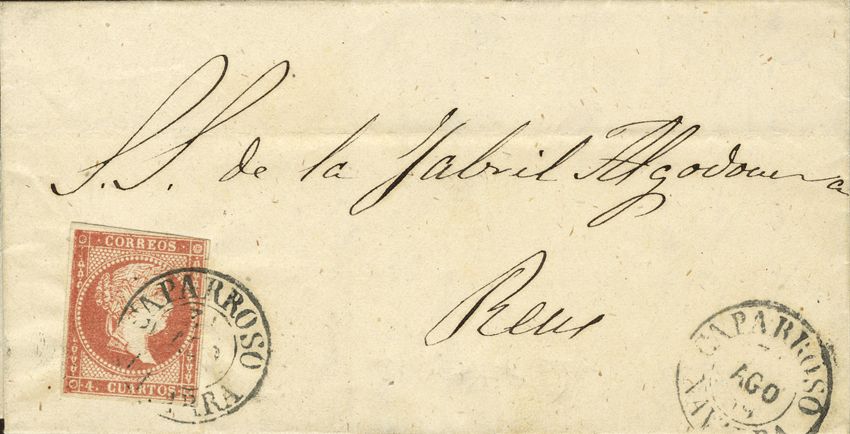 S.S. de la Fabril Algodonera
Reus
CORREOS
4. CUARTOS
CAPARROSO
CAPARROSO
AGO
NAVARRA